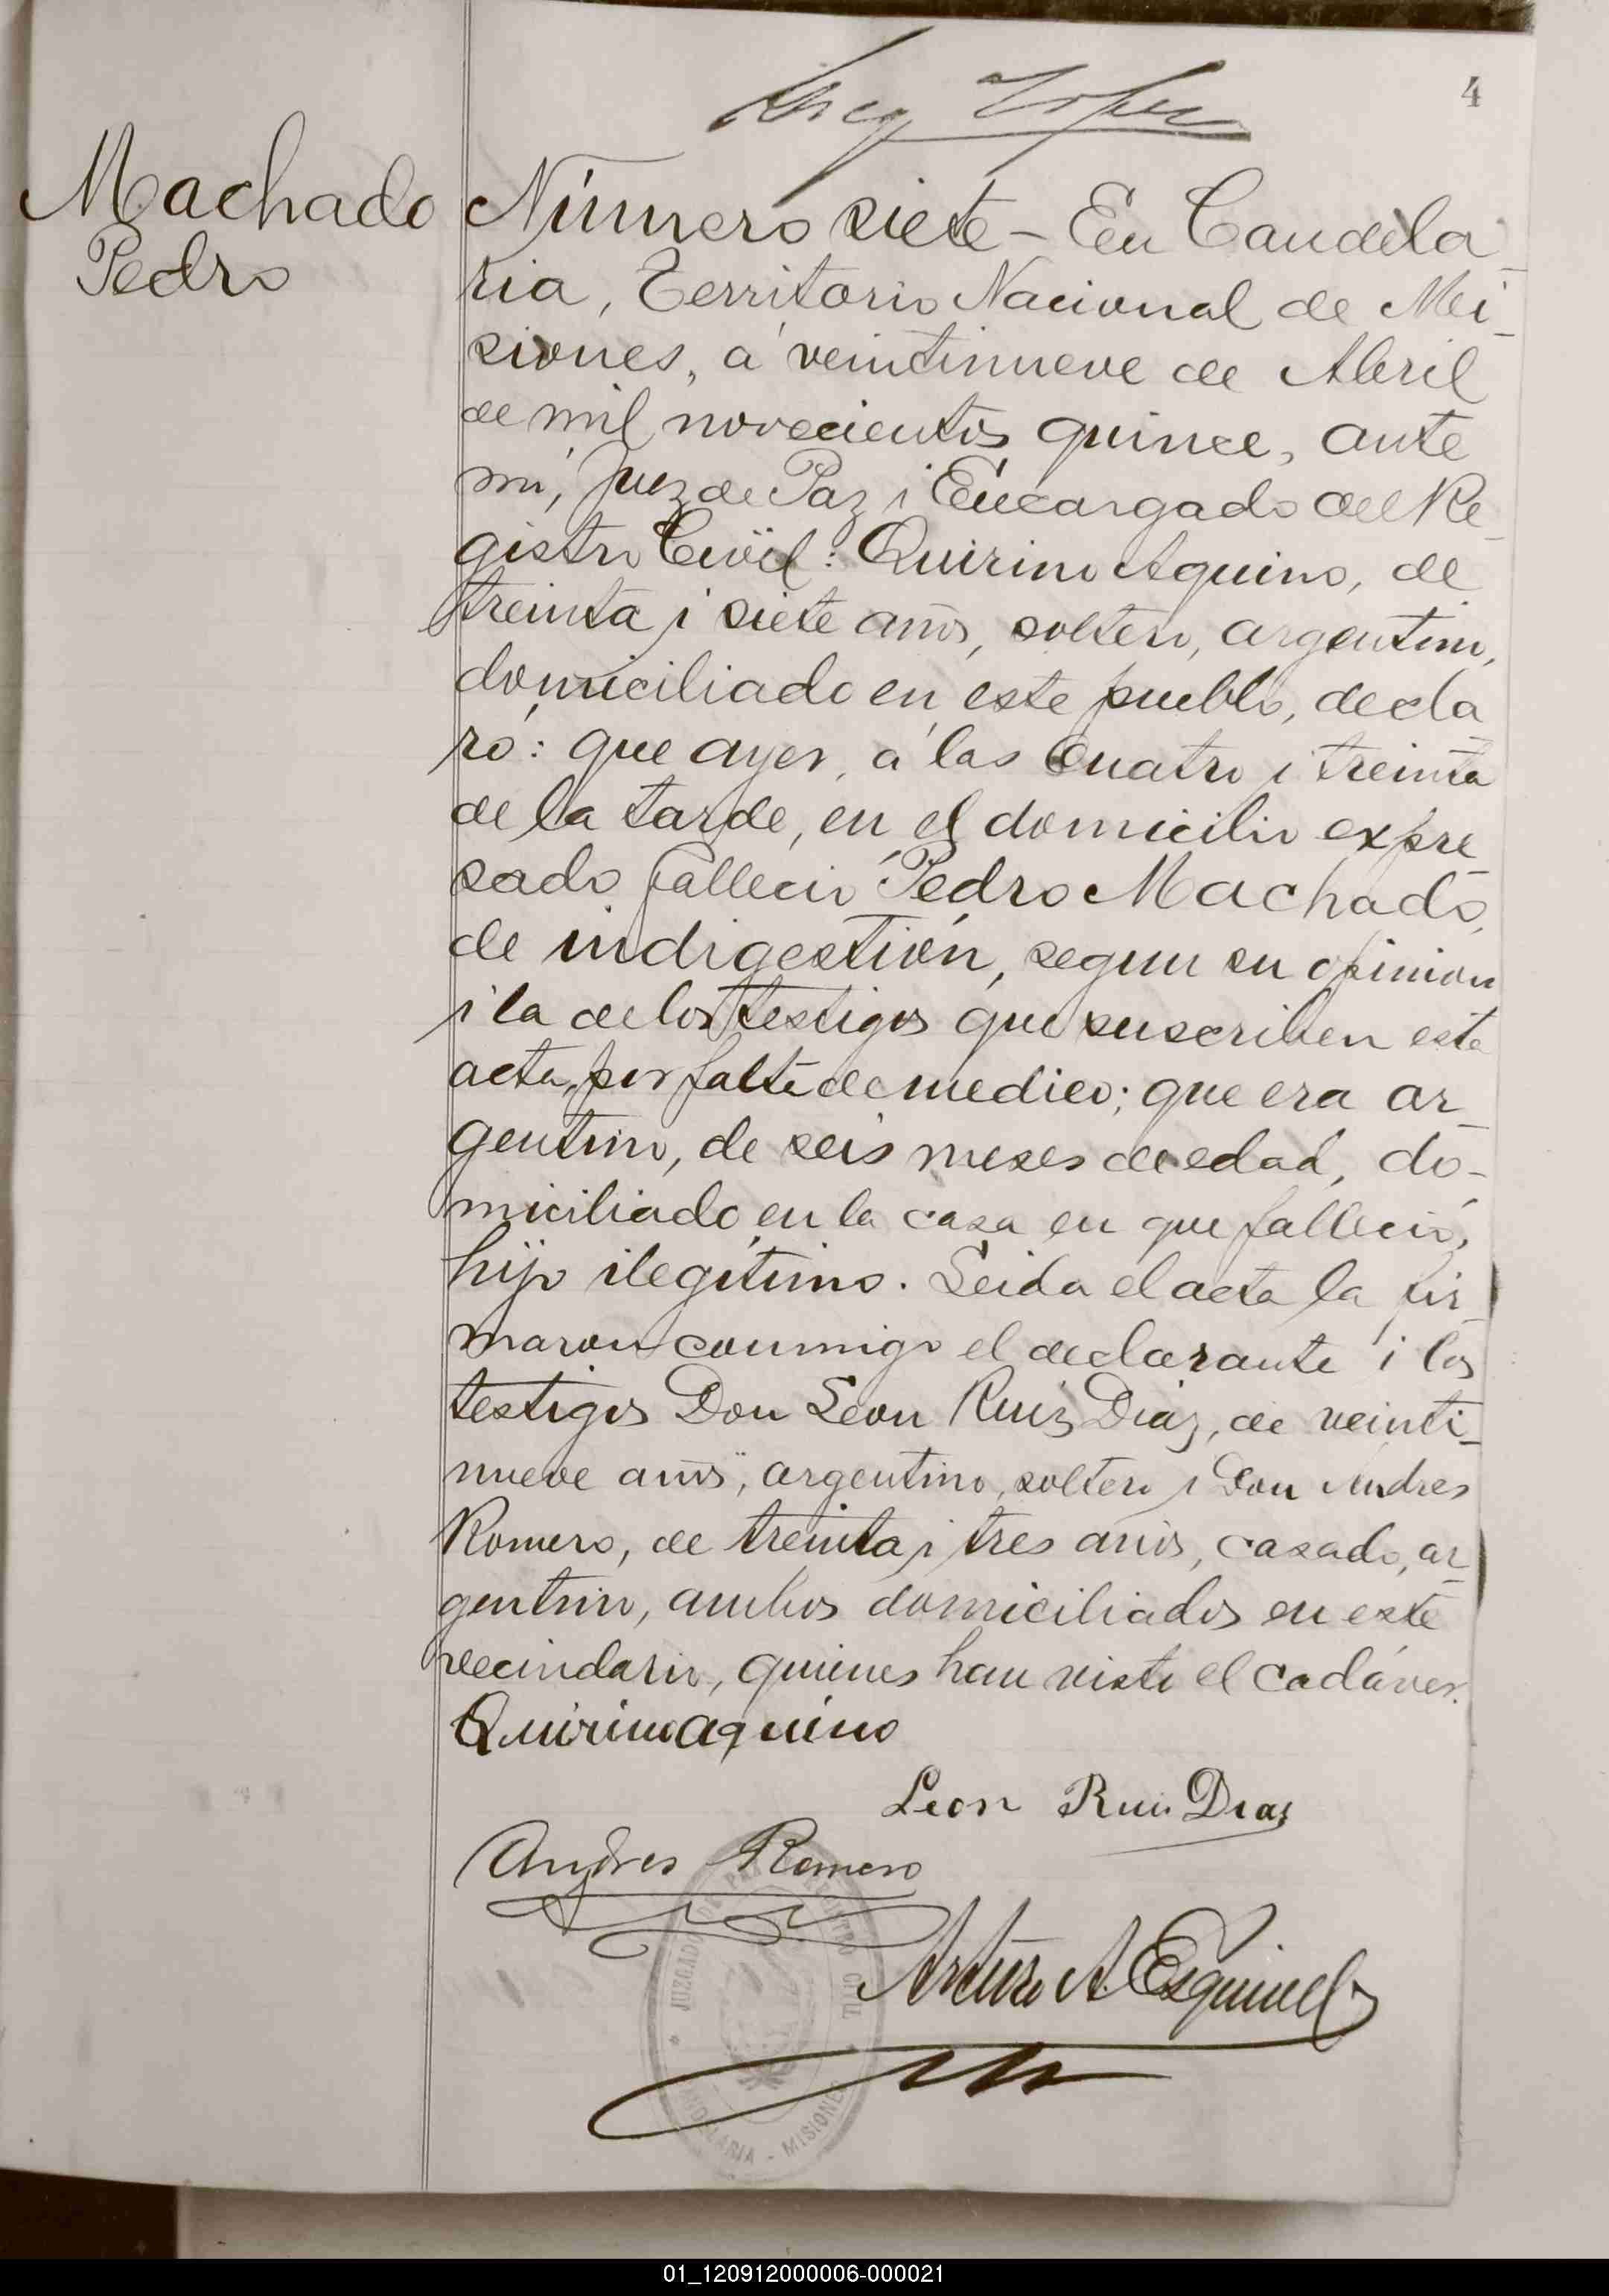 4
Machado
Pedro
Número siete - En Candela
ria, Territorio Nacional de Mi-
siones, á veintinueve de Abril
de mil novecientos quince, ante
mí, Juez de Paz i Encargado del Re-
gistro Civil: Quirino Aquino, de
treinta i siete años, soltero, argentino,
domiciliado en este pueblo, decla
ró: que ayer, á las cuatro i treinta
de la tarde, en el domicilio expre-
sado falleció Pedro Machado,
de indigestión, segun su opinion
i la de los testigos que suscriben esta
acta, por falta de medico; que era ar-
gentino, de seis meses de edad, do-
miciliado en la casa en que falleció,
hijo ilegítimo. Leida el acta la fir-
maron conmigo el declarante i los
testigos Don Leon Ruiz Diaz, de veinti-
nueve años, argentino, soltero i Don Andres
Romero, de treinta i tres años, casado, ar-
gentino, ambos domiciliados en este
vecindario, quienes han visto el cadáver.
Quirino aquino
Leon Ruis Dias
Andres Romero
Arturo A. Esquivel
JUZGADO DE PAZ REGISTRO CIVIL
CANDELARIA - MISIONES
01_120912000006-000021